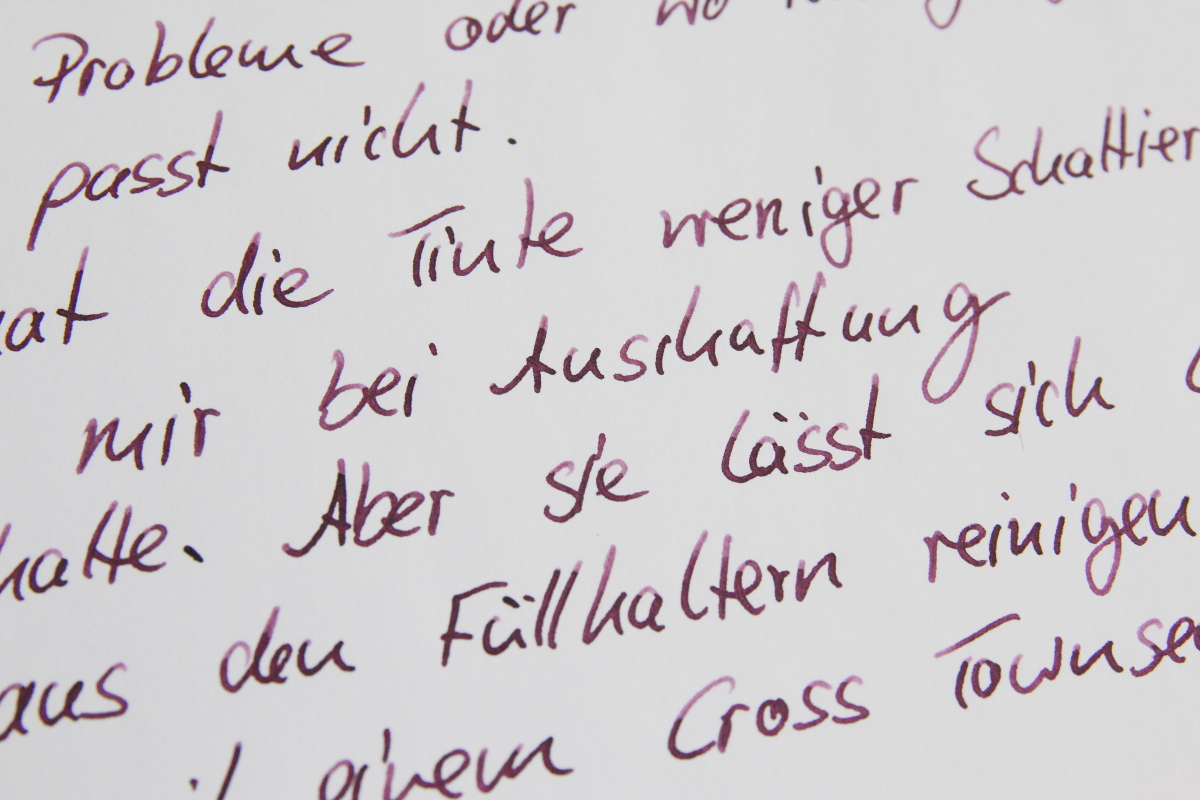 Probleme oder wo
passt nicht.
hat die Tinte weniger Schattier
mir bei Anschaffung
hatte. Aber sie lässt sich
aus den Füllhaltern reinigen
einem Cross Townsen